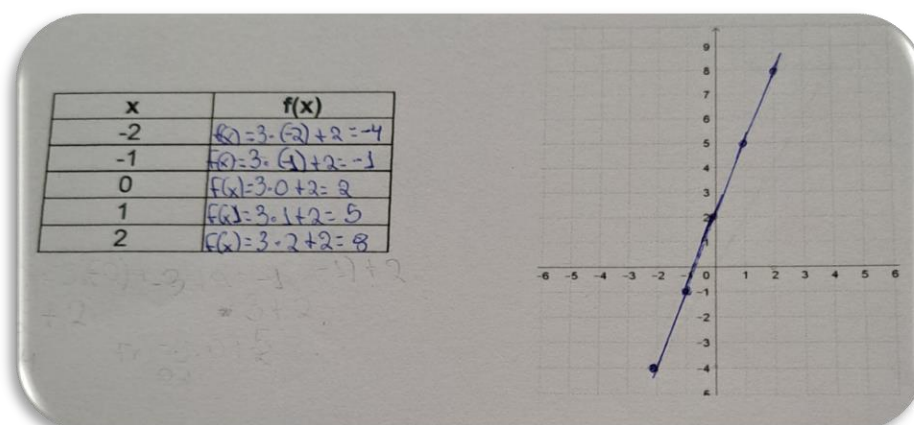 x f(x)
-2 f(x)=3·(-2)+2=-4
-1 f(x)=3·(-1)+2=-1
0 f(x)=3·0+2=2
1 f(x)=3·1+2=5
2 f(x)=3·2+2=8
9
8
7
6
5
4
3
2
1
-6 -5 -4 -3 -2 0 1 2 3 4 5 6
-1
-2
-3
-4